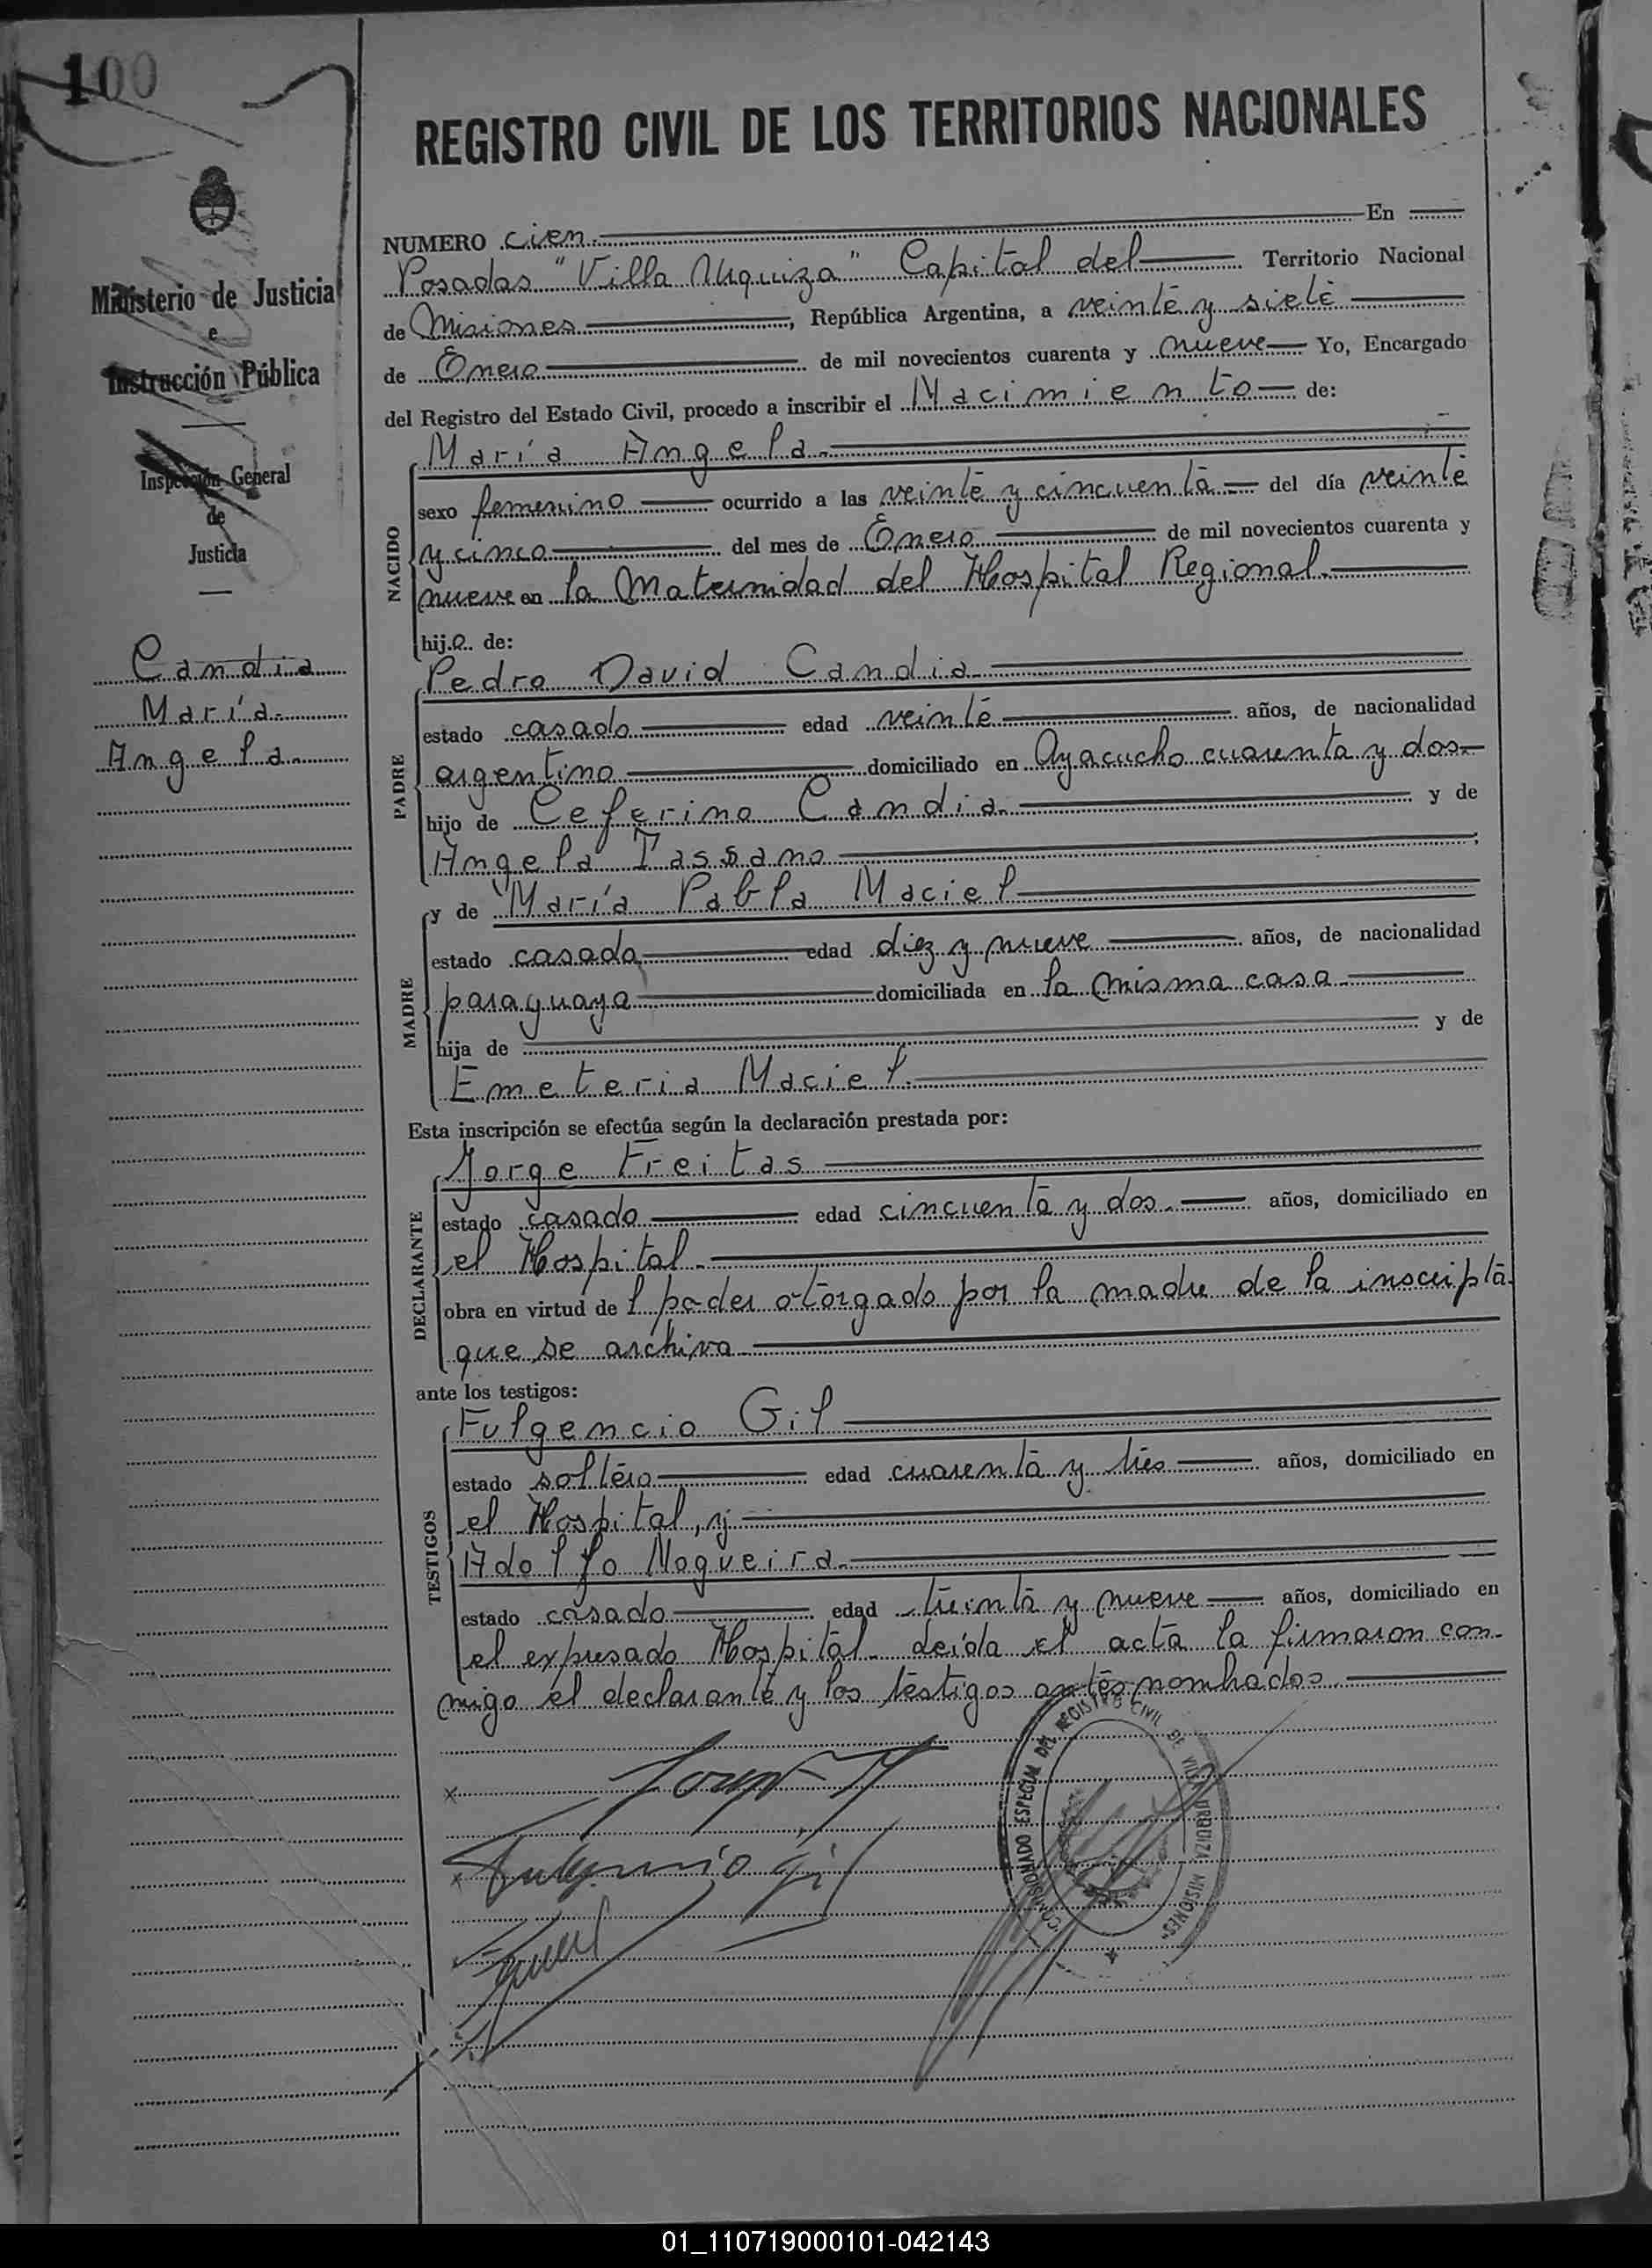 100
REGISTRO CIVIL DE LOS TERRITORIOS NACIONALES
Ministerio de Justicia
e
Instrucción Pública
Inspección General
de
Justicia
Candia
María
Angela
NUMERO cien. En
Posadas "Villa Urquiza" Capital del Territorio Nacional
de Misiones, República Argentina, a veinte y siete
de Enero de mil novecientos cuarenta y nueve Yo, Encargado
del Registro del Estado Civil, procedo a inscribir el Nacimiento de:
NACIDO
María Angela.
sexo femenino ocurrido a las veinte y cincuenta del día veinte
y cinco del mes de Enero de mil novecientos cuarenta y
nueve en la Maternidad del Hospital Regional.
hija de:
PADRE
Pedro David Candia
estado casado edad veinte años, de nacionalidad
argentino domiciliado en Ayacucho cuarenta y dos
hijo de Ceferino Candia y de
Angela Tassano ;
MADRE
y de María Pabla Maciel
estado casada edad diez y nueve años, de nacionalidad
paraguaya domiciliada en la misma casa
hija de y de
Emeteria Maciel.
Esta inscripción se efectúa según la declaración prestada por:
DECLARANTE
Jorge Freitas
estado casado edad cincuenta y dos. años, domiciliado en
el Hospital.
obra en virtud del poder otorgado por la madre de la inscripta
que se archiva
ante los testigos:
TESTIGOS
Fulgencio Gil
estado soltero edad cuarenta y tres años, domiciliado en
el Hospital, y
Adolfo Nogueira.
estado casado edad treinta y nueve años, domiciliado en
el expresado Hospital. Leída el acta la firmaron con-
migo el declarante y los testigos antes nombrados.
COMISIONADO ESPECIAL DEL REGISTRO CIVIL DE VILLA URQUIZA MISIONES
Fulgencio Gil
01_110719000101-042143